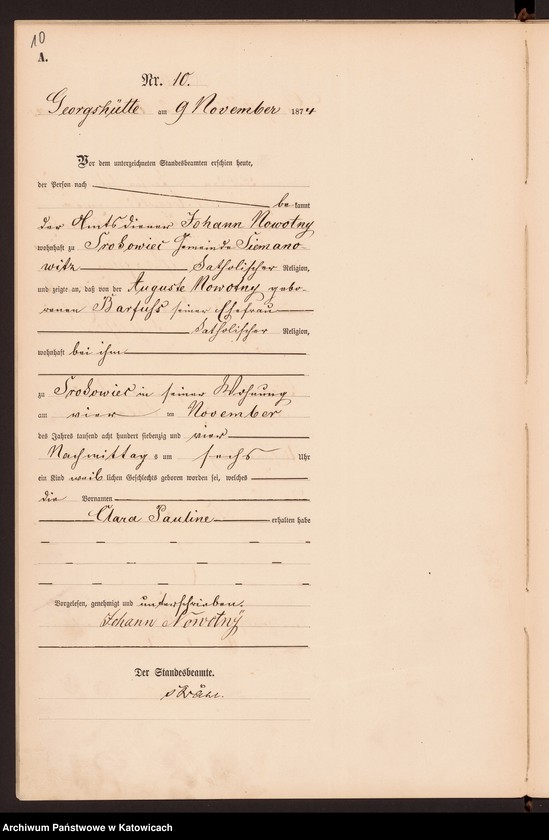 10
A.
Nr. 10.
Georgshütte am 9 November 1874
Vor dem unterzeichneten Standesbeamten erschien heute,
der Person nach
bekannt
der Amtsdiener Johann Nowotny
wohnhaft zu Srokowiec Gemeinde Siemano-
witz katholischer Religion,
und zeigte an, daß von der Auguste Nowotny gebo-
renen Barfuß seiner Ehefrau
katholischer Religion,
wohnhaft bei ihm
zu Srokowiec in seiner Wohnung
am vier ten November
des Jahres tausend acht hundert siebenzig und vier
Nachmittags um sechs Uhr
ein Kind weiblichen Geschlechts geboren worden sei, welches
die Vornamen
Clara Pauline erhalten habe
Vorgelesen, genehmigt und unterschrieben.
Johann Nowotny
Der Standesbeamte.
Archiwum Państwowe w Katowicach